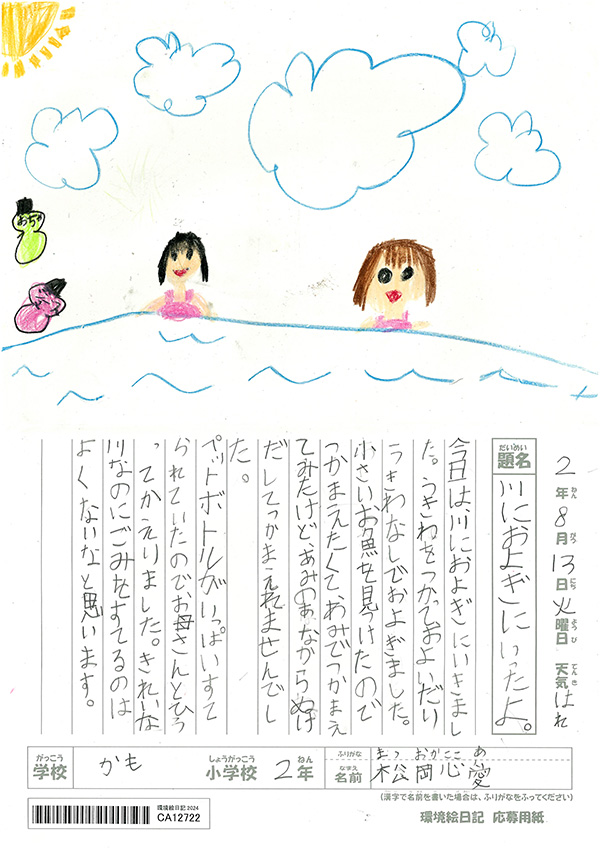 おちゃ
2年8月13日火曜日 天気はれ
ねん がつ にち ようび てんき
だいめい
題名
川におよぎにいったよ。
今日は、川におよぎにいきまし
た。うきわをつかっておよいだり
うきわなしでおよぎました。
小さいお魚を見つけたので
つかまえたくて、あみでつかまえ
てみたけど、あみのあなからぬけ
だしてつかまえれませんでし
た。
ペットボトルがいっぱいすて
られていたので、お母さんとひろ
ってかえりました。きれいな
川なのにごみをすてるのは
よくないなと思います。
がっこう
学校
かも
しょうがっこう
小学校
ねん
2年
ふりがな
まつ おか ここ あ
なまえ
名前
松岡心愛
(漢字で名前を書いた場合は、ふりがなをふってください)
環境絵日記 2024
CA12722
環境絵日記 応募用紙